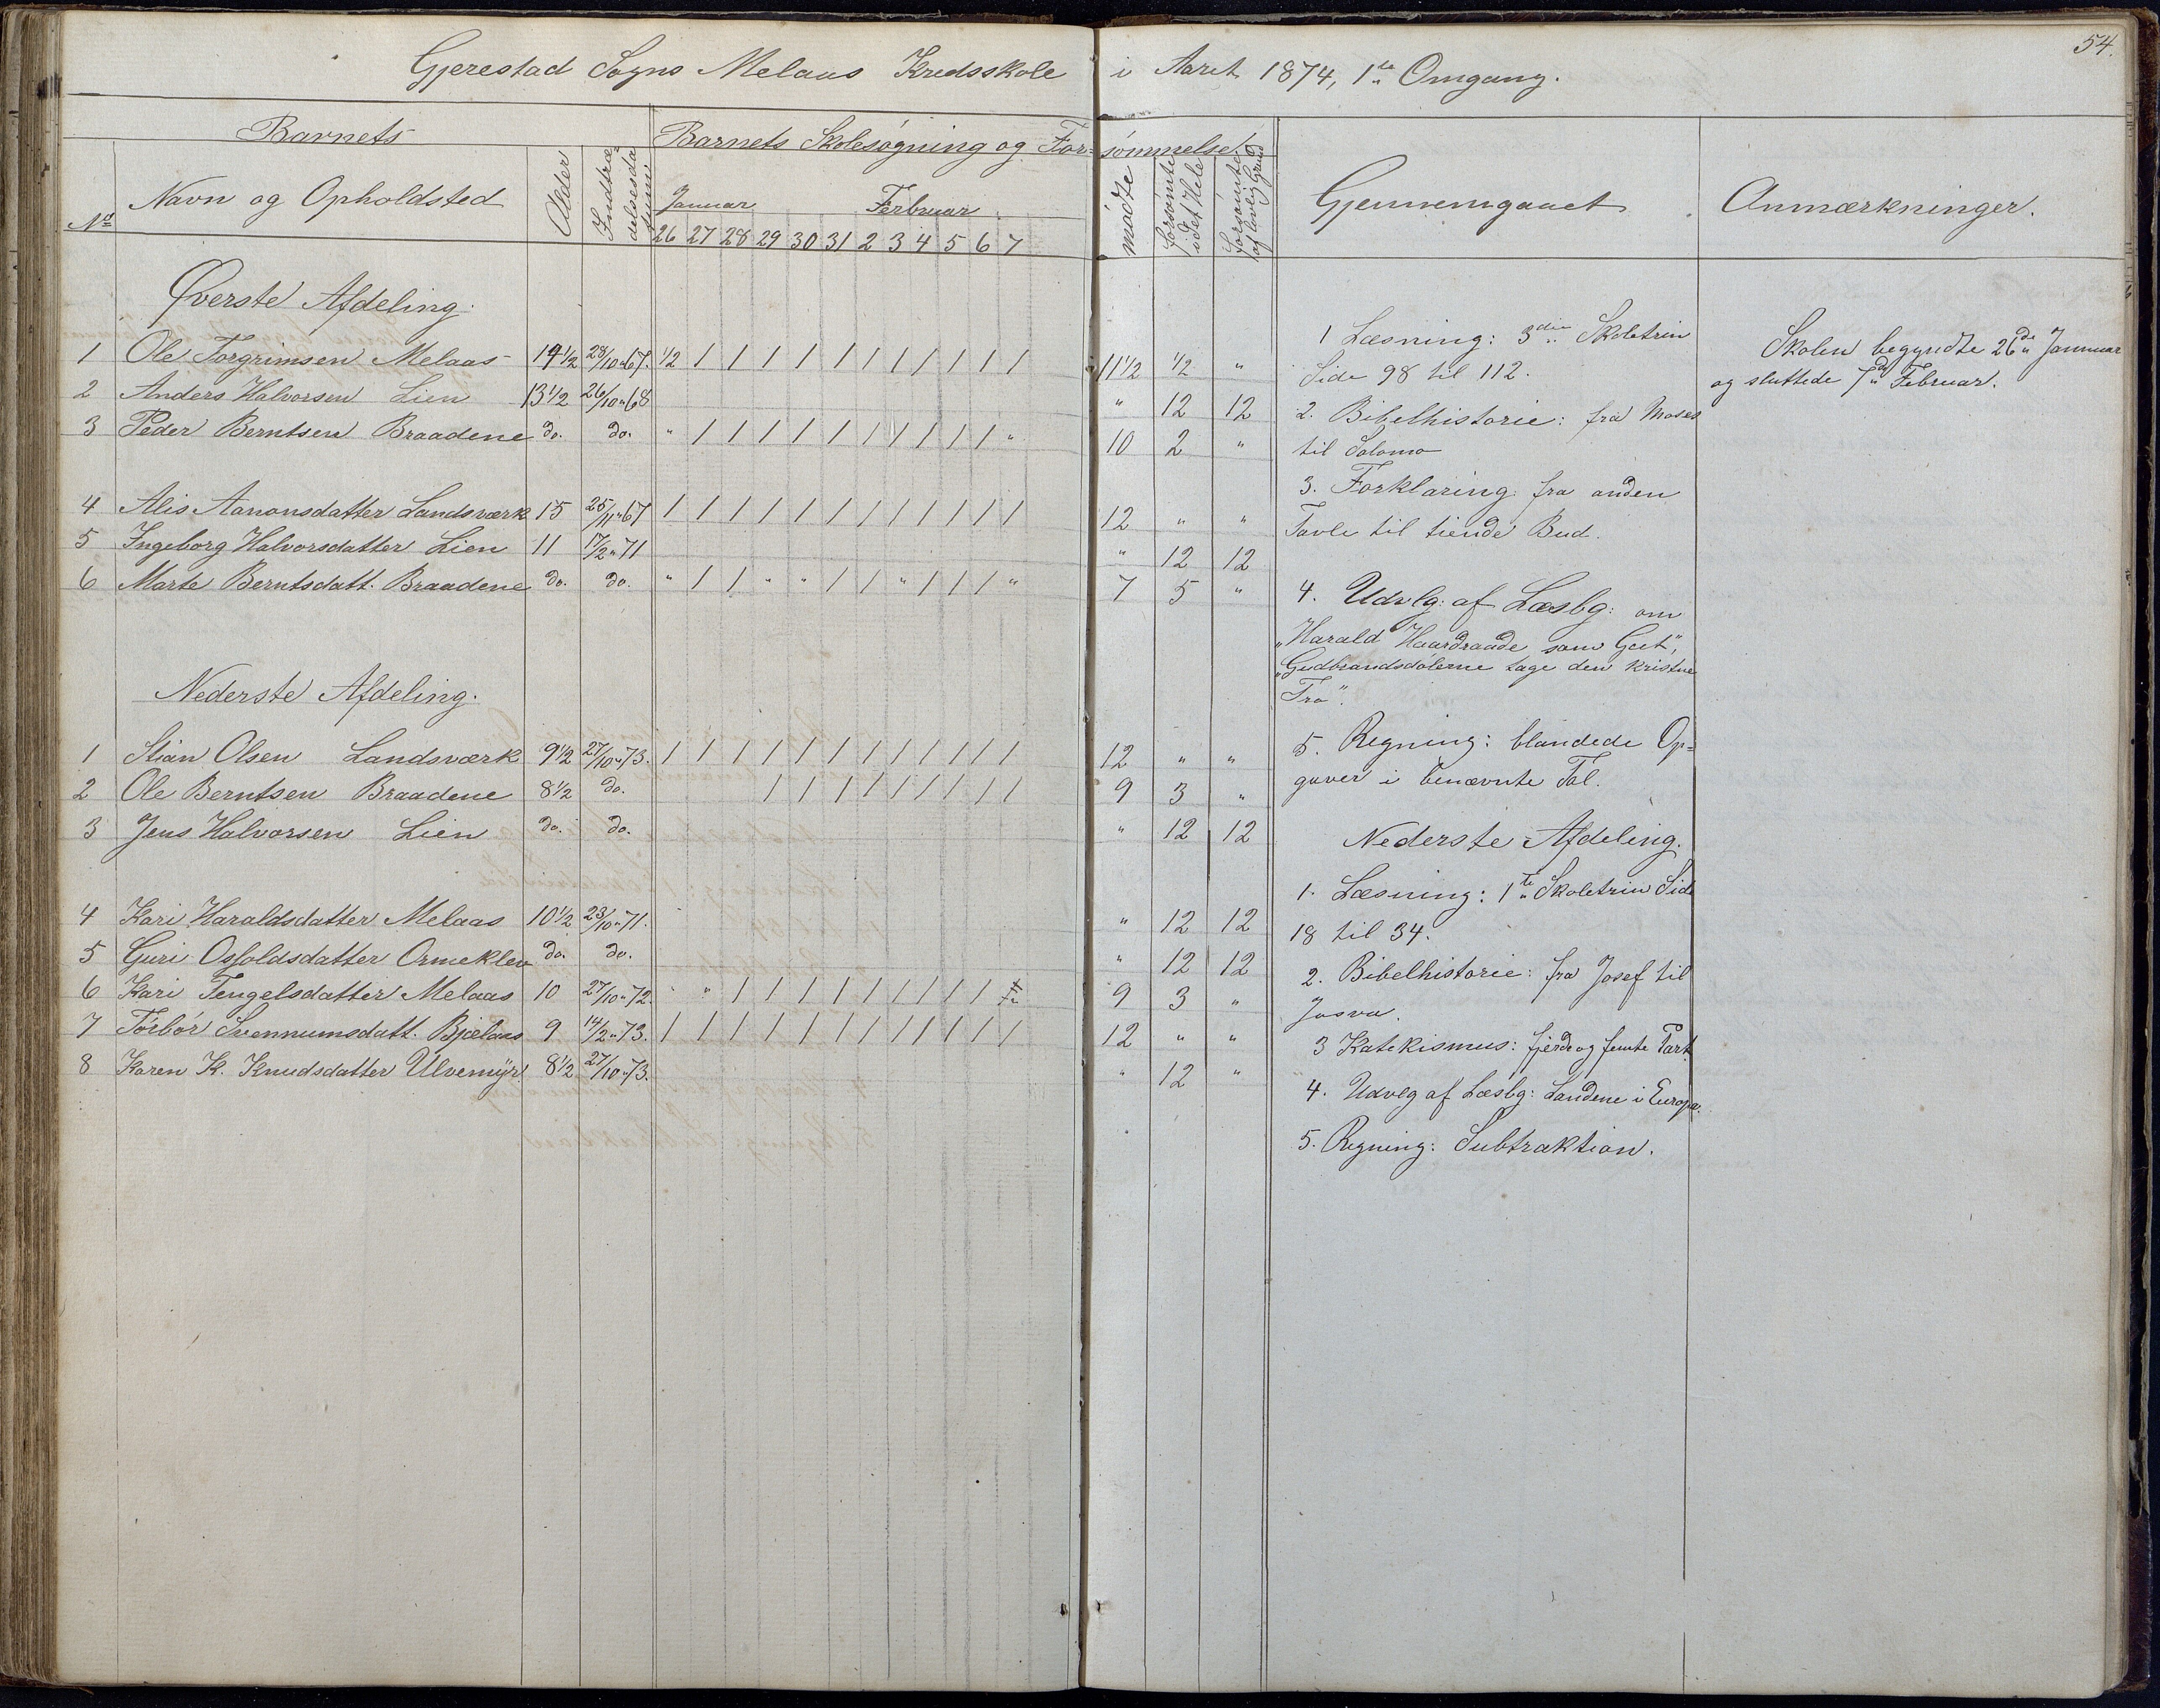 54.
Gjerestad Sogns Melaas Kredsskole i Aaret 1874, 1ste Omgang.
Barnets
Barnets Skolesøgning og Forsømmelse.
No
Navn og Opholdsted
Alder
Indtrædelsesdatum
Januar
Februar
26 27 28 29 30 31 2 3 4 5 6 7
mødte
forsømte i det Hele
forsømte af lovlig Grund
Gjennemgaaet
Anmærkninger.
Øverste Afdeling.
1 Ole Torgrimsen Melaas 14 1/2 28/10 "67. 1/2 / / / / / / / / / / / 11 1/2 1/2 "
2 Anders Halvorsen Lien 13 1/2 26/10 "68 " 12 12
3 Peder Berntsen Braadene do. do. " / / / / / / / / / / " 10 2 "
4 Alis Aanonsdatter Landsværk 15 25/11 "67 / / / / / / / / / / / / 12 " "
5 Ingeborg Halvorsdatter Lien 11 17/2 "71 " 12 12
6 Marte Berntsdatt. Braadene do. do. " / / " " / / " / / / " 7 5 "
Nederste Afdeling.
1 Stian Olsen Landsværk 9 1/2 27/10 "73. / / / / / / / / / / / / 12 " "
2 Ole Berntsen Braadene 8 1/2 do. / / / / / / / / / 9 3 "
3 Jens Halvorsen Lien do. do. " 12 12
4 Kari Haraldsdatter Melaas 10 1/2 23/10 "71. " 12 12
5 Guri Osfoldsdatter Ormeklev do. do. " 12 12
6 Kari Tengelsdatter Melaas 10 27/10 "72. " " / / / / / / / / / 9 3 "
7 Torbør Svennumsdatt. Bjælaas 9 14/2 "73. / / / / / / / / / / / / 12 " "
8 Karen K. Knudsdatter Ulvemyr. 8 1/2 27/10 "73. " 12 "
1 Læsning: 3die Skoletrin
Side 98 til 112.
2. Bibelhistorie: fra Moses
til Salomo
3. Forklaring fra anden
Tavle til tiende Bud.
4. Udvlg: af Læsbg: om
"Harald Haardraade som Gut",
"Gudbrandsdølerne tage den kristne
Tro".
5. Regning: blandede Op=
gaver i benævnte Tal.
Nederste Afdeling.
1. Læsning: 1ste Skoletrin Side
18 til 34.
2. Bibelhistorie: fra Josef til
Josva.
3 Katekismus: fjerde og femte Part
4. Udvlg af Læsbg: Landene i Europa.
5. Regning: Subtraktion.
Skolen begyndte 26de Januar
og sluttede 7de Februar.